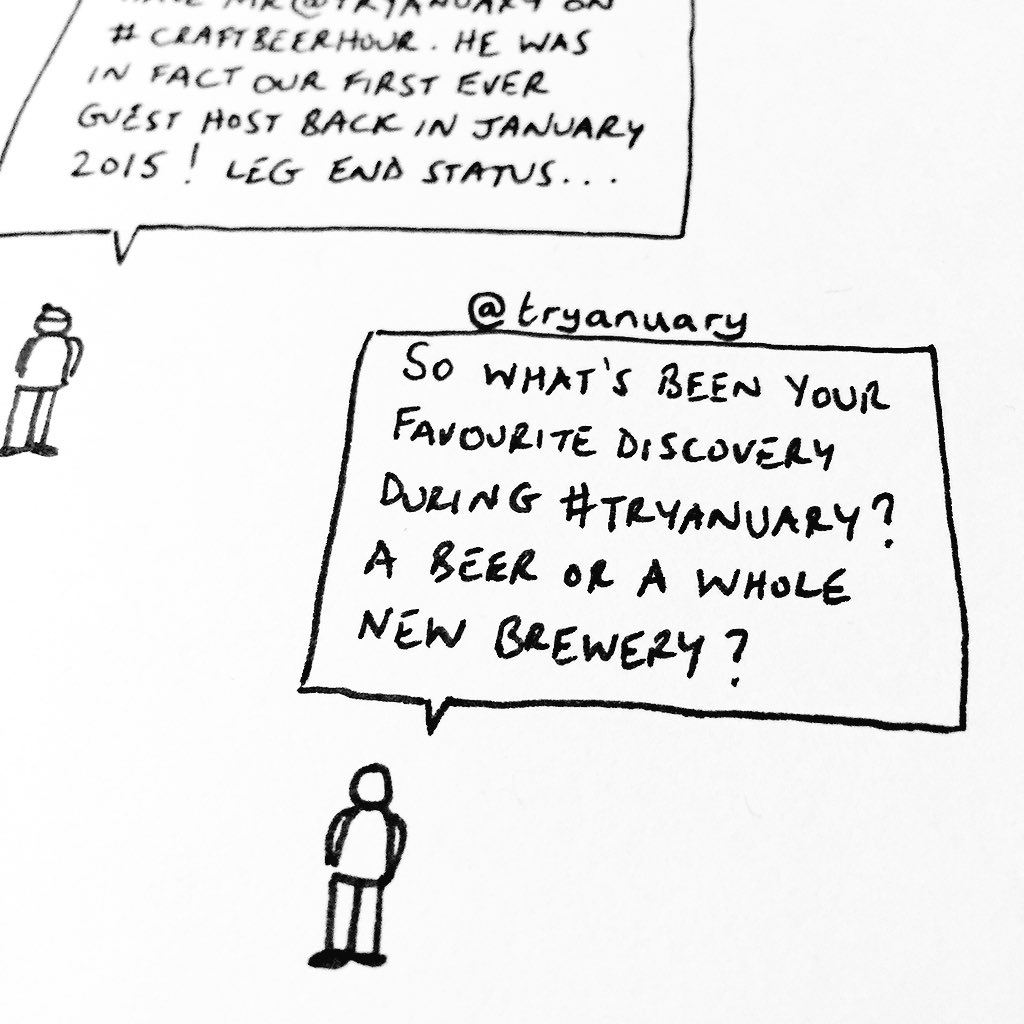 HAVE MR @TRYANUARY ON
# CRAFTBEERHOUR. HE WAS
IN FACT OUR FIRST EVER
GUEST HOST BACK IN JANUARY
2015! LEG END STATUS...
@tryanuary
SO WHAT'S BEEN YOUR
FAVOURITE DISCOVERY
DURING #TRYANUARY?
A BEER OR A WHOLE
NEW BREWERY?